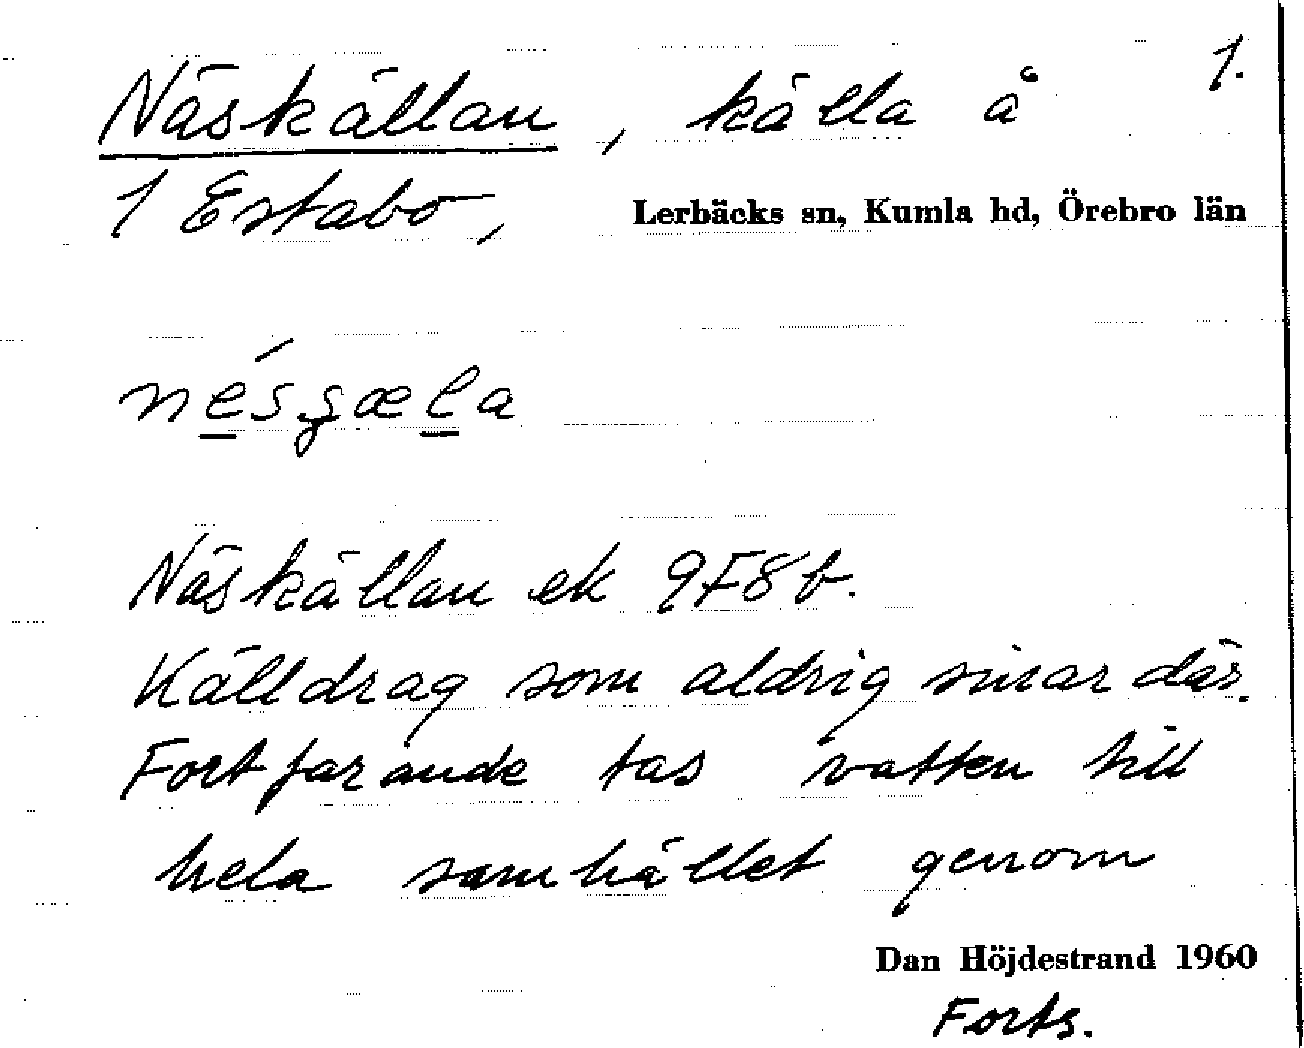 1.
Näskällan, källa å
1 Estabo, Lerbäcks sn, Kumla hd, Örebro län
nésgæla
Näskällan ek 9F8b.
Källdrag som aldrig sinar där.
Fortfarande tas vatten till
hela samhället genom
Dan Höjdestrand 1960
Forts.